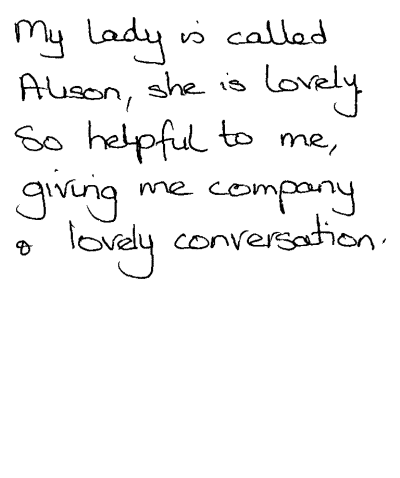 My lady is called
Alison, she is lovely
So helpful to me,
giving me company
& lovely conversation.